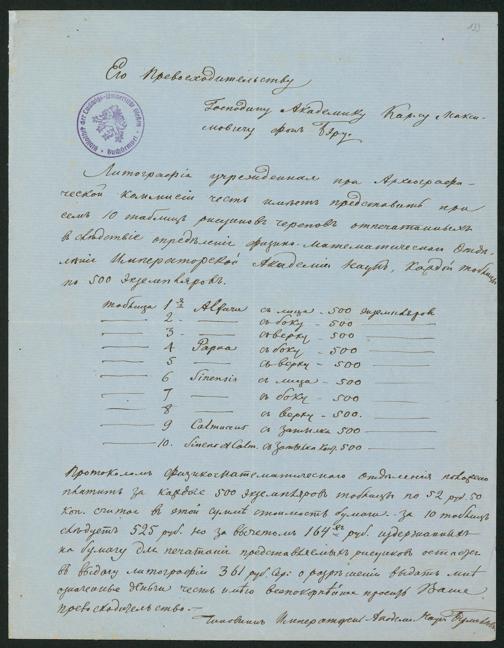 133
Его Превосходительству
Господину Академику Карлу Макси-
мовичу фон Бэру.
Литографія учрежденная при Археографи-
ческой коммисіи честь имѣетъ представить при
семъ 10 таблицъ рисунковъ череповъ отпечатанныхъ
въ слѣдствіе опредѣленія физико-математическаго Отдѣ-
ленія Императорской Академіи Наукъ, каждой таблицы
по 500 экземпляровъ.
таблица 1я Alfuru съ лица - 500 экземпляровъ
2. съ боку - 500
3 - съ верху - 500
4 Papua съ боку - 500
5 съ верху - 500
6 Sinensis съ лица - 500
7 съ боку - 500
8 съ верху - 500.
9 Calmucus съ затылка 500
10. Sinens et Calm. съ затылка 500
Протоколомъ физико-математическаго отдѣленія положено
платить за каждые 500 экземпляровъ таблицы по 52 руб. 50
коп. считая въ этой суммѣ стоимость бумаги. за 10 таблицъ
слѣдуетъ 525 руб. но за вычетомъ 164 руб. издержанныхъ
на бумагу для печатанія представляемыхъ рисунковъ остается
въ выдачу литографіи 361 руб. Сер: о разрѣшеніи выдать мнѣ
означенные деньги честь имѣю безпокорнѣйше просить Ваше
превосходительство.
Чиновникъ Императорск. Академ. Наукъ